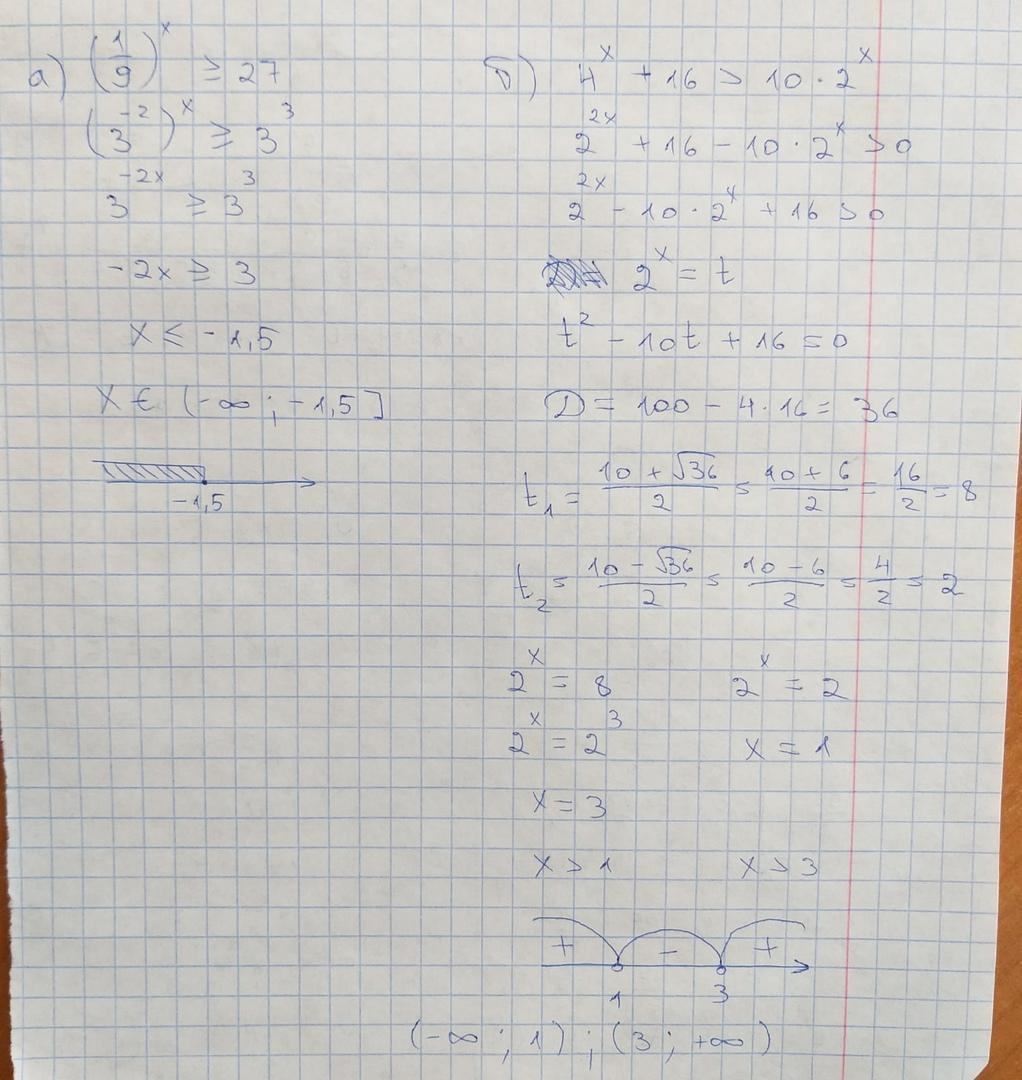 а) (1/9)^x ≥ 27
(3^-2)^x ≥ 3^3
3^-2x ≥ 3^3
-2x ≥ 3
x ≤ -1,5
x ∈ (-∞ ; -1,5]
-1,5
б) 4^x + 16 > 10 · 2^x
2^2x + 16 - 10 · 2^x > 0
2^2x - 10 · 2^x + 16 > 0
2^x = t
t^2 - 10t + 16 = 0
D = 100 - 4 · 16 = 36
t_1 = (10 + √36)/2 = (10 + 6)/2 = 16/2 = 8
t_2 = (10 - √36)/2 = (10 - 6)/2 = 4/2 = 2
2^x = 8 2^x = 2
2^x = 2^3 x = 1
x = 3
x > 1 x > 3
+ - +
1 3
(-∞ ; 1) ; (3 ; +∞)